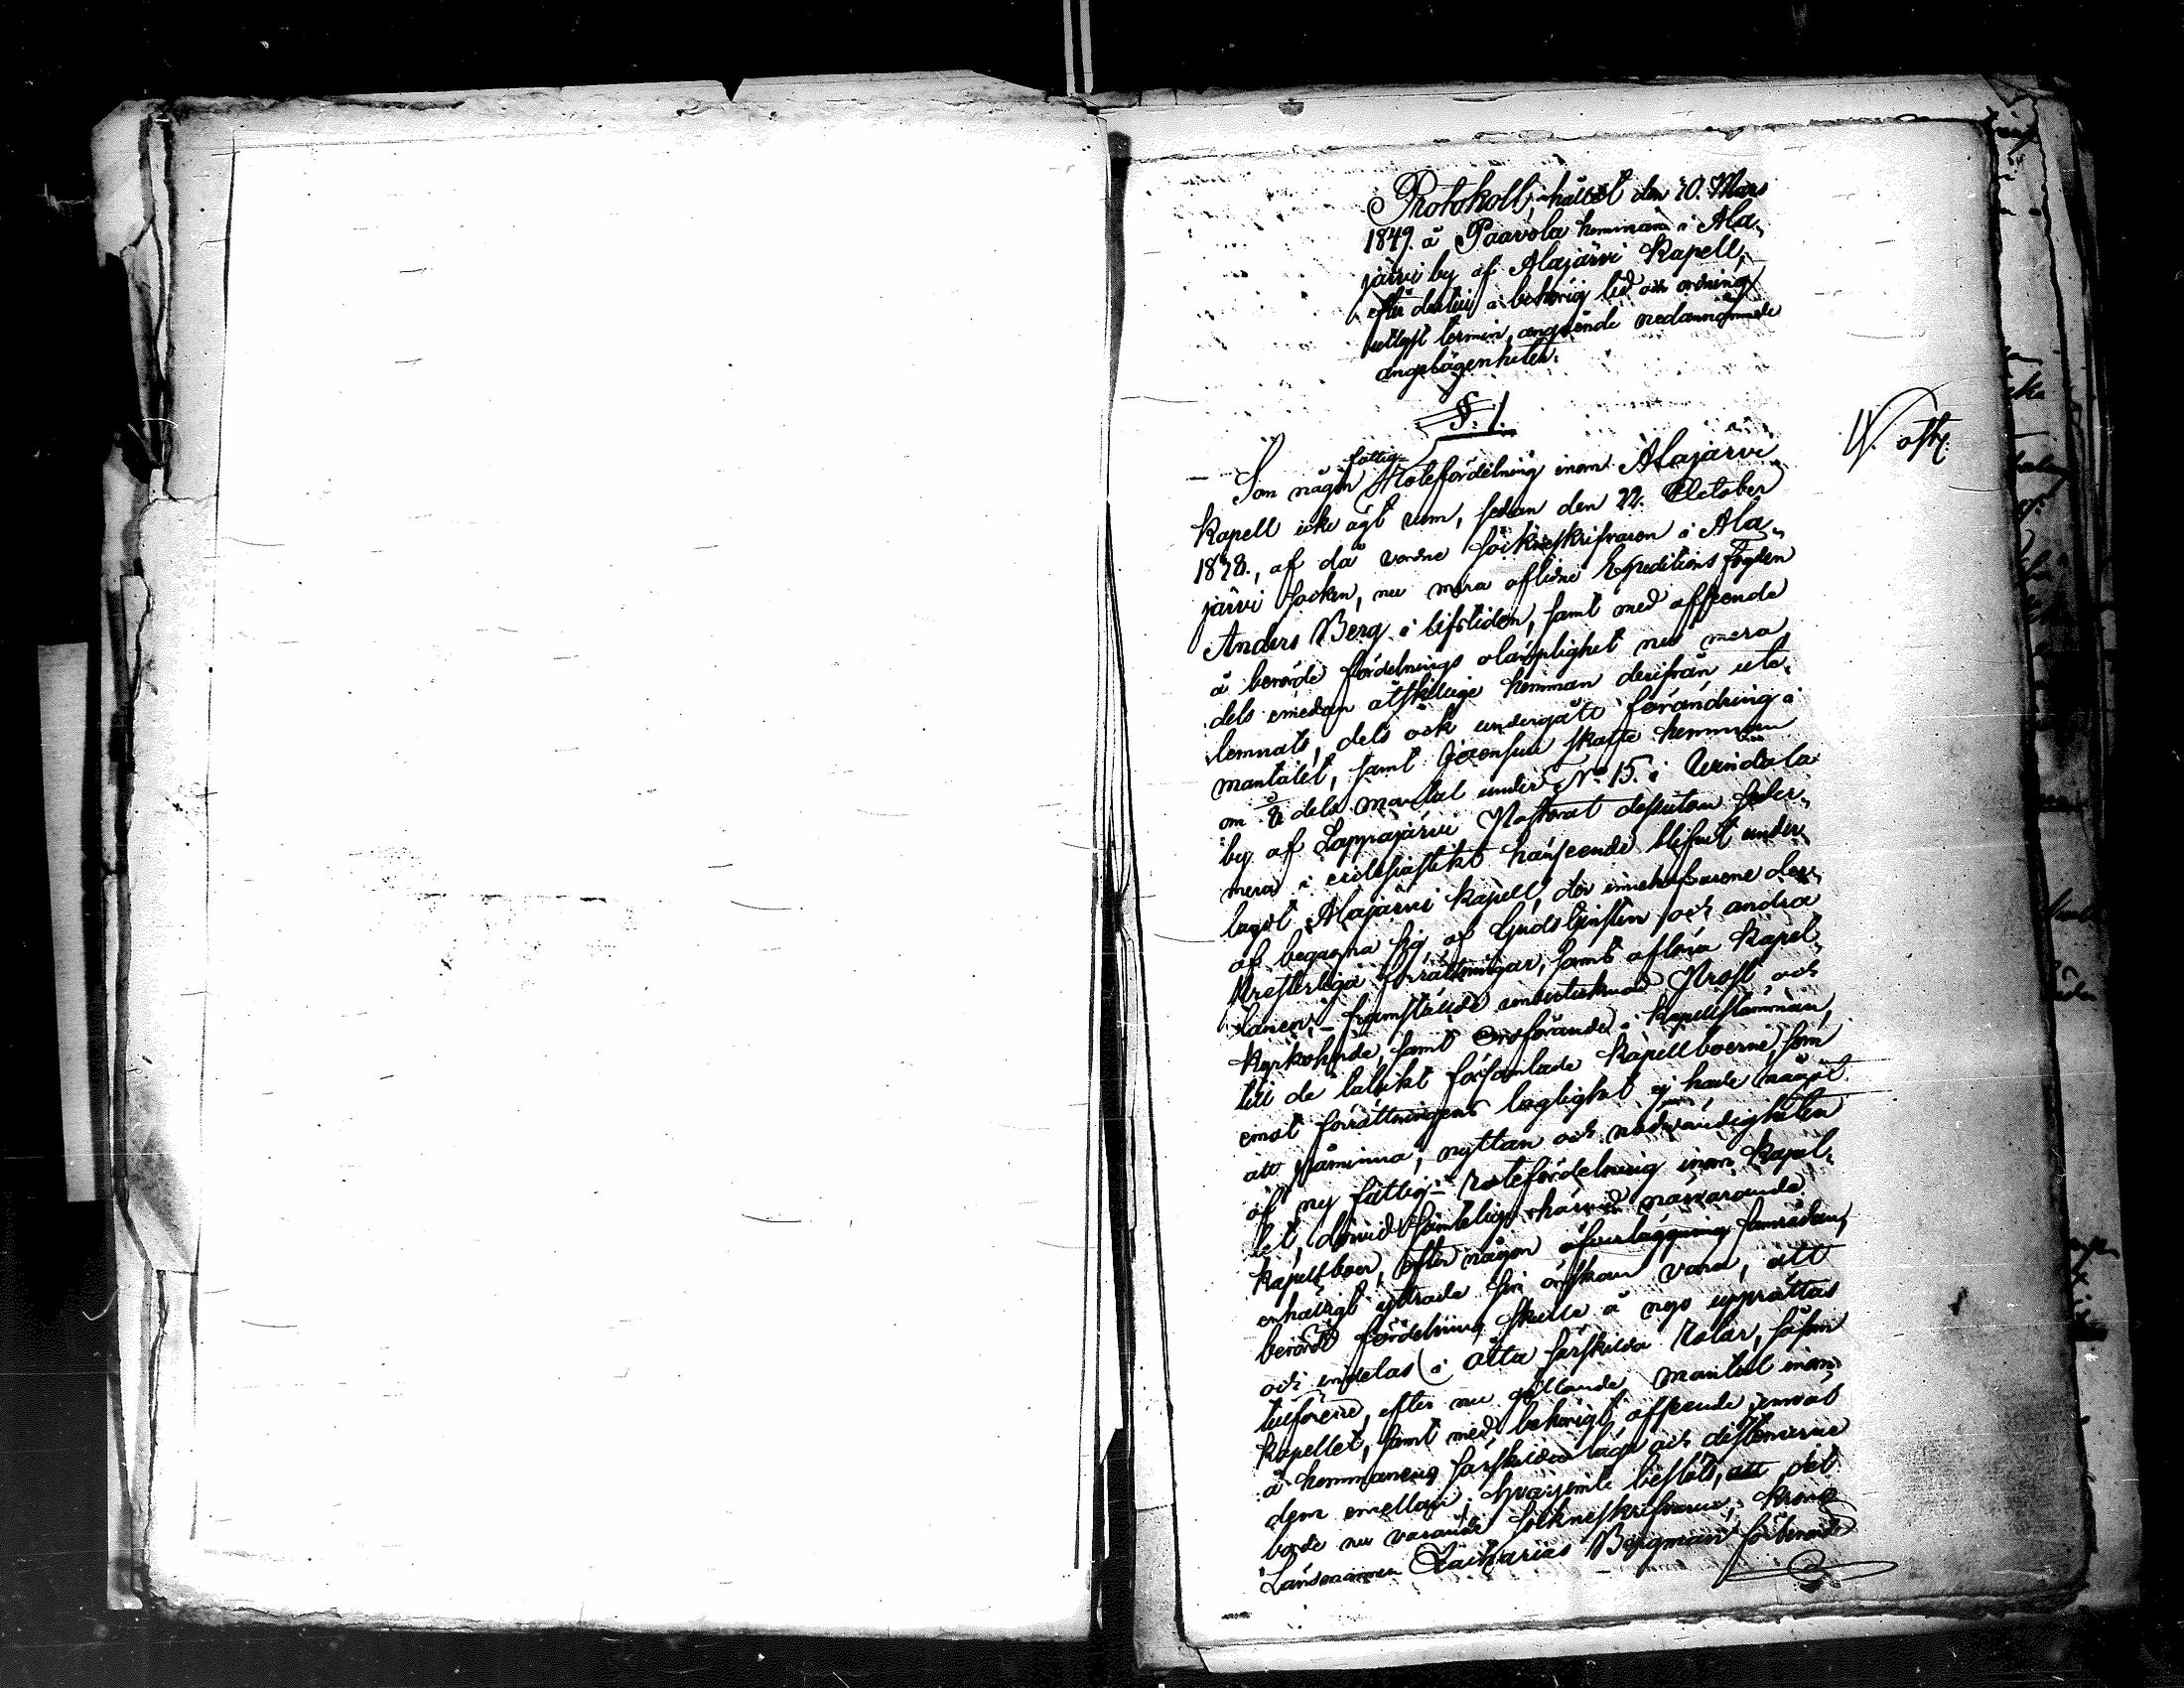 Protokoll, hållet den 10. Mars
1849. å Paavola hemman i Ala-
järvi by af Alajärvi Kapell,
efter dertill i behörig tid och ordning
utlyst termin, angående nedannämnde
angelägenheter.
§. 1.
Som någon fattig-Rotefördelning inom Alajärvi
Kapell icke ägt rum, sedan den 22. October
1828., af då vordne sockneskrifvaren i Ala-
järvi socken, nu mera aflidne Expeditions fogden
Anders Berg i lifstiden, samt med afseende
å berörde fördelnings olämplighet nu mera
dels emedan åtskillige hemman derifrån ute-
lemnats, dels ock undergått förändring i
mantalet, samt Jörensuu skatte hemman
om dels mantal under No 15. i Vindala
by af Lappajärvi Pastorat dessutom seder-
mera i ecclesiastikt hänseende blifvit under-
lagdt Alajärvi Kapell, der innehafvarene der-
af begagna sig af Gudstjensten och andra
Presterliga förrättningar, samt aflöna Kapel-
lanen; – framstälde undertecknad Prost och
Kyrkoherde, samt Ordförande i Kapellstämman,
till de talrikt församlade Kapellboerne, som
emot förrättningens laglighet ej hade något
att påminna, nyttan och nödvändigheten
af ny fattig-Rotefördelning inom Kapel-
let, dervid samtelige härvid närvarande
Kapellboer, efter någon öfverläggning samrådan,
enhälligt yttrade sin önskan vara, att
berörde fördelning skulle å nyo upprättas
och indelas i åtta särskilda Rotar, såsom
tillförene, efter nu gällande mantal inom
Kapellet, samt med behörigt afseende
å hemmanens särskilda läge och distancerne
dem emellan; hvarjemte beslöts, att det
borde nu varande sockneskrifvaren, Krono
Länsmannen Zacharias Bergman förbemälde